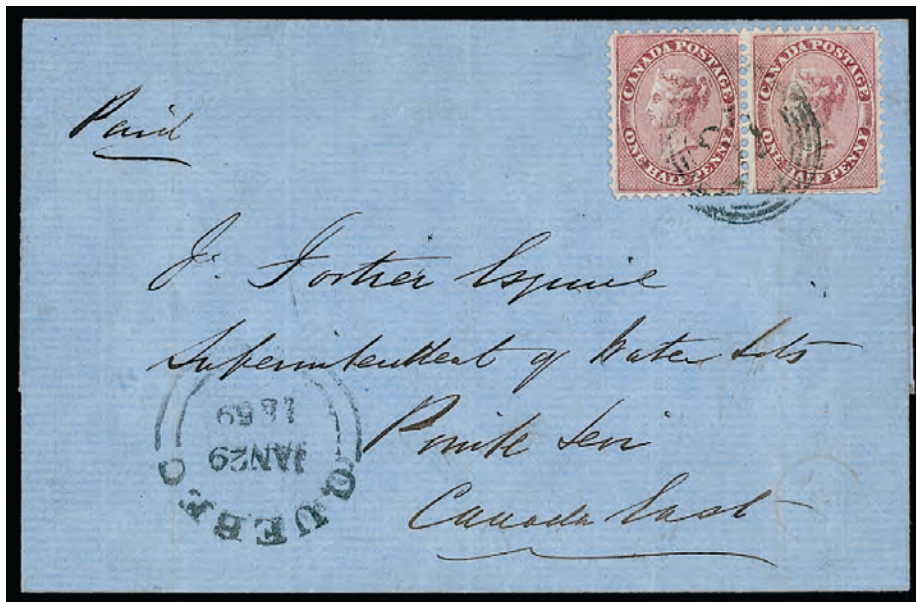 CANADA POSTAGE
ONE HALF PENNY
CANADA POSTAGE
ONE HALF PENNY
Paid
J. Fortier Esquire
Superintendent of Water Lots
Pointe Levi
Canada East
QUEBEC
JAN 29
1859